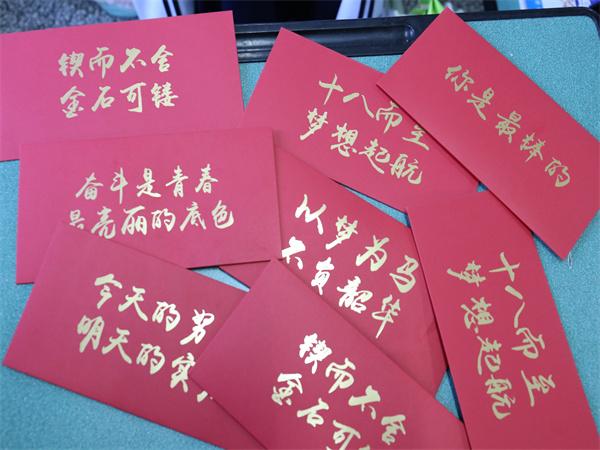 锲而不舍
金石可镂
十八而至
梦想起航
你是最棒的
奋斗是青春
最亮丽的底色
以梦为马
不负韶华
十八而至
梦想起航
今天的努
明天的实
锲而不舍
金石可